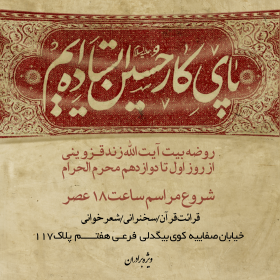 پای کار حسین ایستاده ایم
روضه بیت آیت‌الله زند قزوینی
از روز اول تا دوازدهم محرم الحرام
شروع مراسم ساعت ۱۸ عصر
قرائت قرآن/سخنرانی/شعرخوانی
خیابان صفاییه کوی بیگدلی فرعی هفتم پلاک ۱۱۷
ویژه برادران